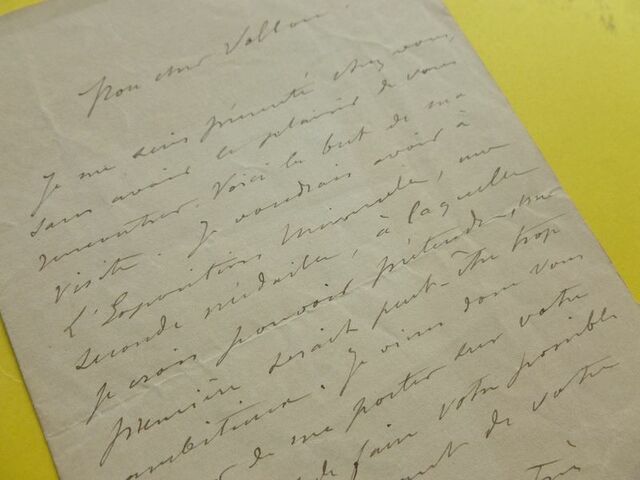 Mon cher Vollon.
Je me suis présenté chez vous,
sans avoir le plaisir de vous
rencontrer. Voici le but de ma
visite. Je voudrais avoir à
l'Exposition Universelle, une
seconde médaille, à laquelle
je crois pouvoir prétendre, une
première serait peut-être trop
ambitieux. Je viens donc vous
de me porter sur votre
de faire votre possible
de votre